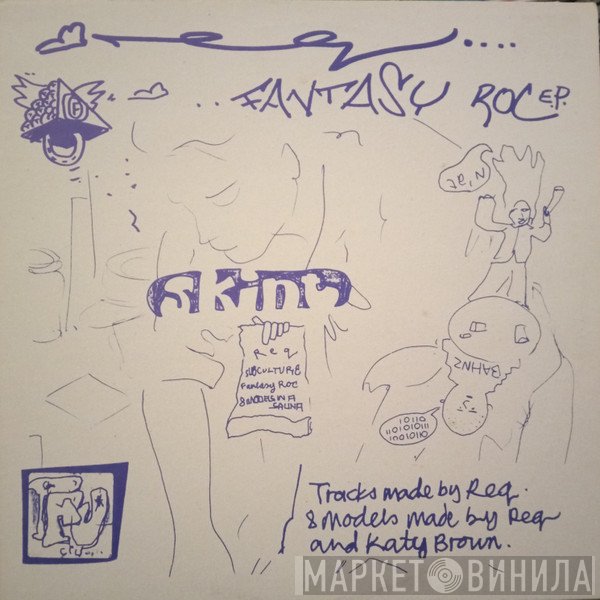 Req....
..FANTASY ROC E.P.
Skint
Req
SUBCULTURE
Fantasy Roc
8 MODELS IN A
SAUNA
BAHNZ
10110
Tracks made by Req.
8 Models made by Req
and Katy Brown.
МАРКЕТ ВИНИЛА